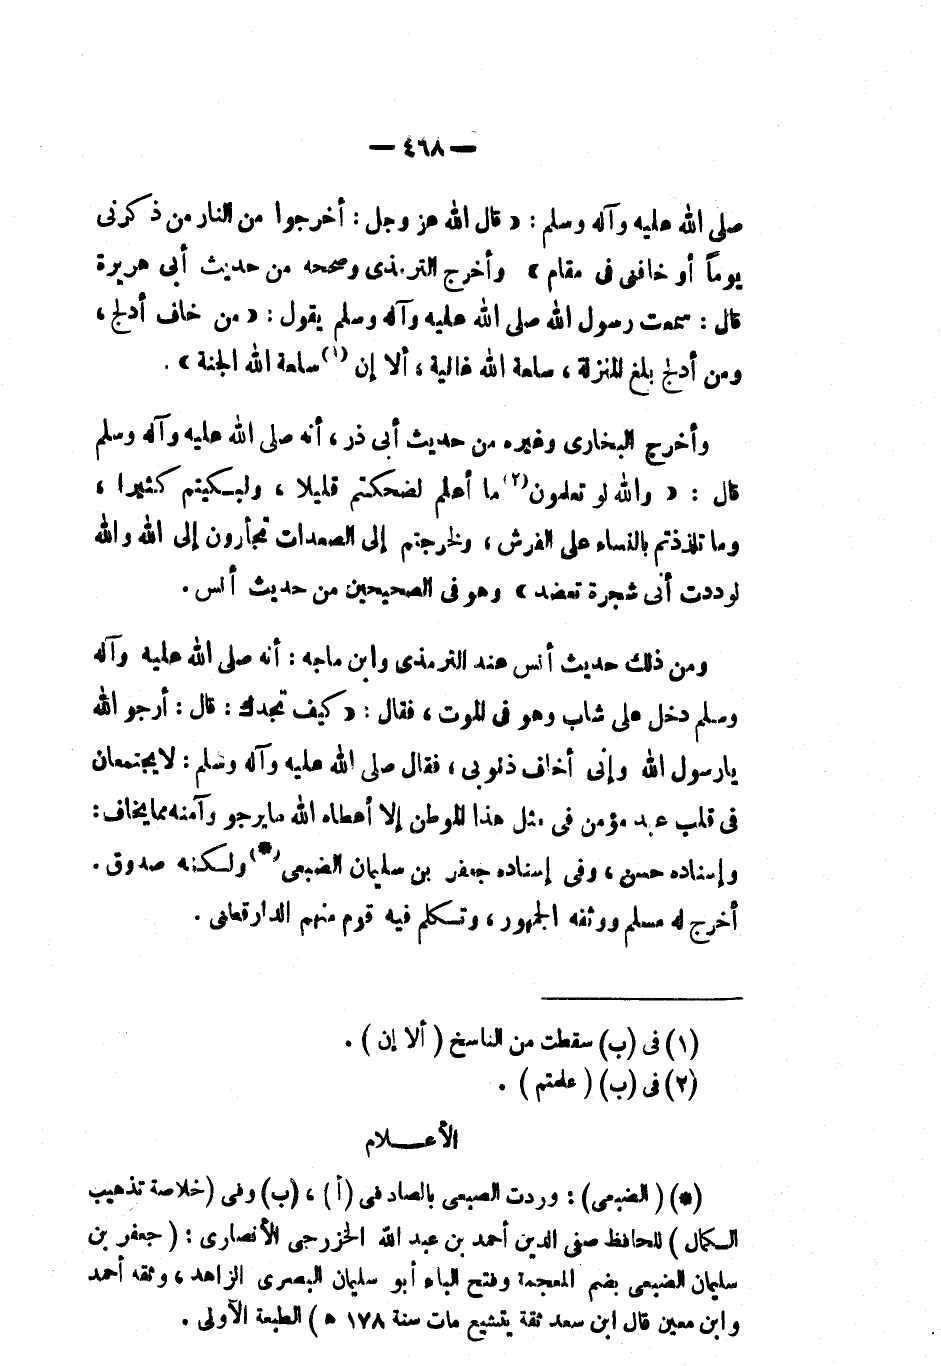 — ٤٦٨ —
صلى الله عليه وآله وسلم : « قال الله عز وجل : أخرجوا من النار من ذكرنى
يوماً أو خافنى فى مقام » وأخرج الترمذى وصححه من حديث أبى هريرة
قال : سمعت رسول الله صلى الله عليه وآله وسلم يقول : « من خاف أدلج ،
ومن أدلج بلغ المنزلة ، سلعة الله غالية ، ألا إن (١) سلعة الله الجنة » .
وأخرج البخارى وغيره من حديث أبى ذر ، أنه صلى الله عليه وآله وسلم
قال : « والله لو تعلمون (٢) ما أعلم لضحكتم قليلا ، ولبكيتم كثيرا ،
وما تلذذتم بالنساء على الفرش ، ولخرجتم إلى الصعدات تجأرون إلى الله والله
لوددت أنى شجرة تعضد » وهو فى الصحيحين من حديث أنس .
ومن ذلك حديث أنس عند الترمذى وابن ماجه : أنه صلى الله عليه وآله
وسلم دخل على شاب وهو فى الموت ، فقال : « كيف تجدك : قال : أرجو الله
يارسول الله وإنى أخاف ذنوبى ، فقال صلى الله عليه وآله وسلم : لا يجتمعان
فى قلب عبد مؤمن فى مثل هذا الموطن إلا أعطاه الله مايرجو وآمنه مما يخاف :
وإسناده حسن ، وفى إسناده جعفر بن سليمان الضبعى (*) ولكنه صدوق .
أخرج له مسلم ووثقه الجمهور ، وتكلم فيه قوم منهم الدارقطنى .
(١) فى (ب) سقطت من الناسخ ( ألا إن ) .
(٢) فى (ب) ( علمتم ) .
الأعـــلام
(*) ( الضبعى ) : وردت الصبعى بالصاد فى ( أ ) ، (ب) وفى (خلاصة تذهيب
الكمال ) للحافظ صفى الدين أحمد بن عبد الله الخزرجى الأنصارى : ( جعفر بن
سليمان الضبعى بضم المعجمة وفتح الباء أبو سليمان البصرى الزاهد ، وثقه أحمد
وابن معين قال ابن سعد ثقة يتشيع مات سنة ١٧٨ ه ) الطبعة الأولى .